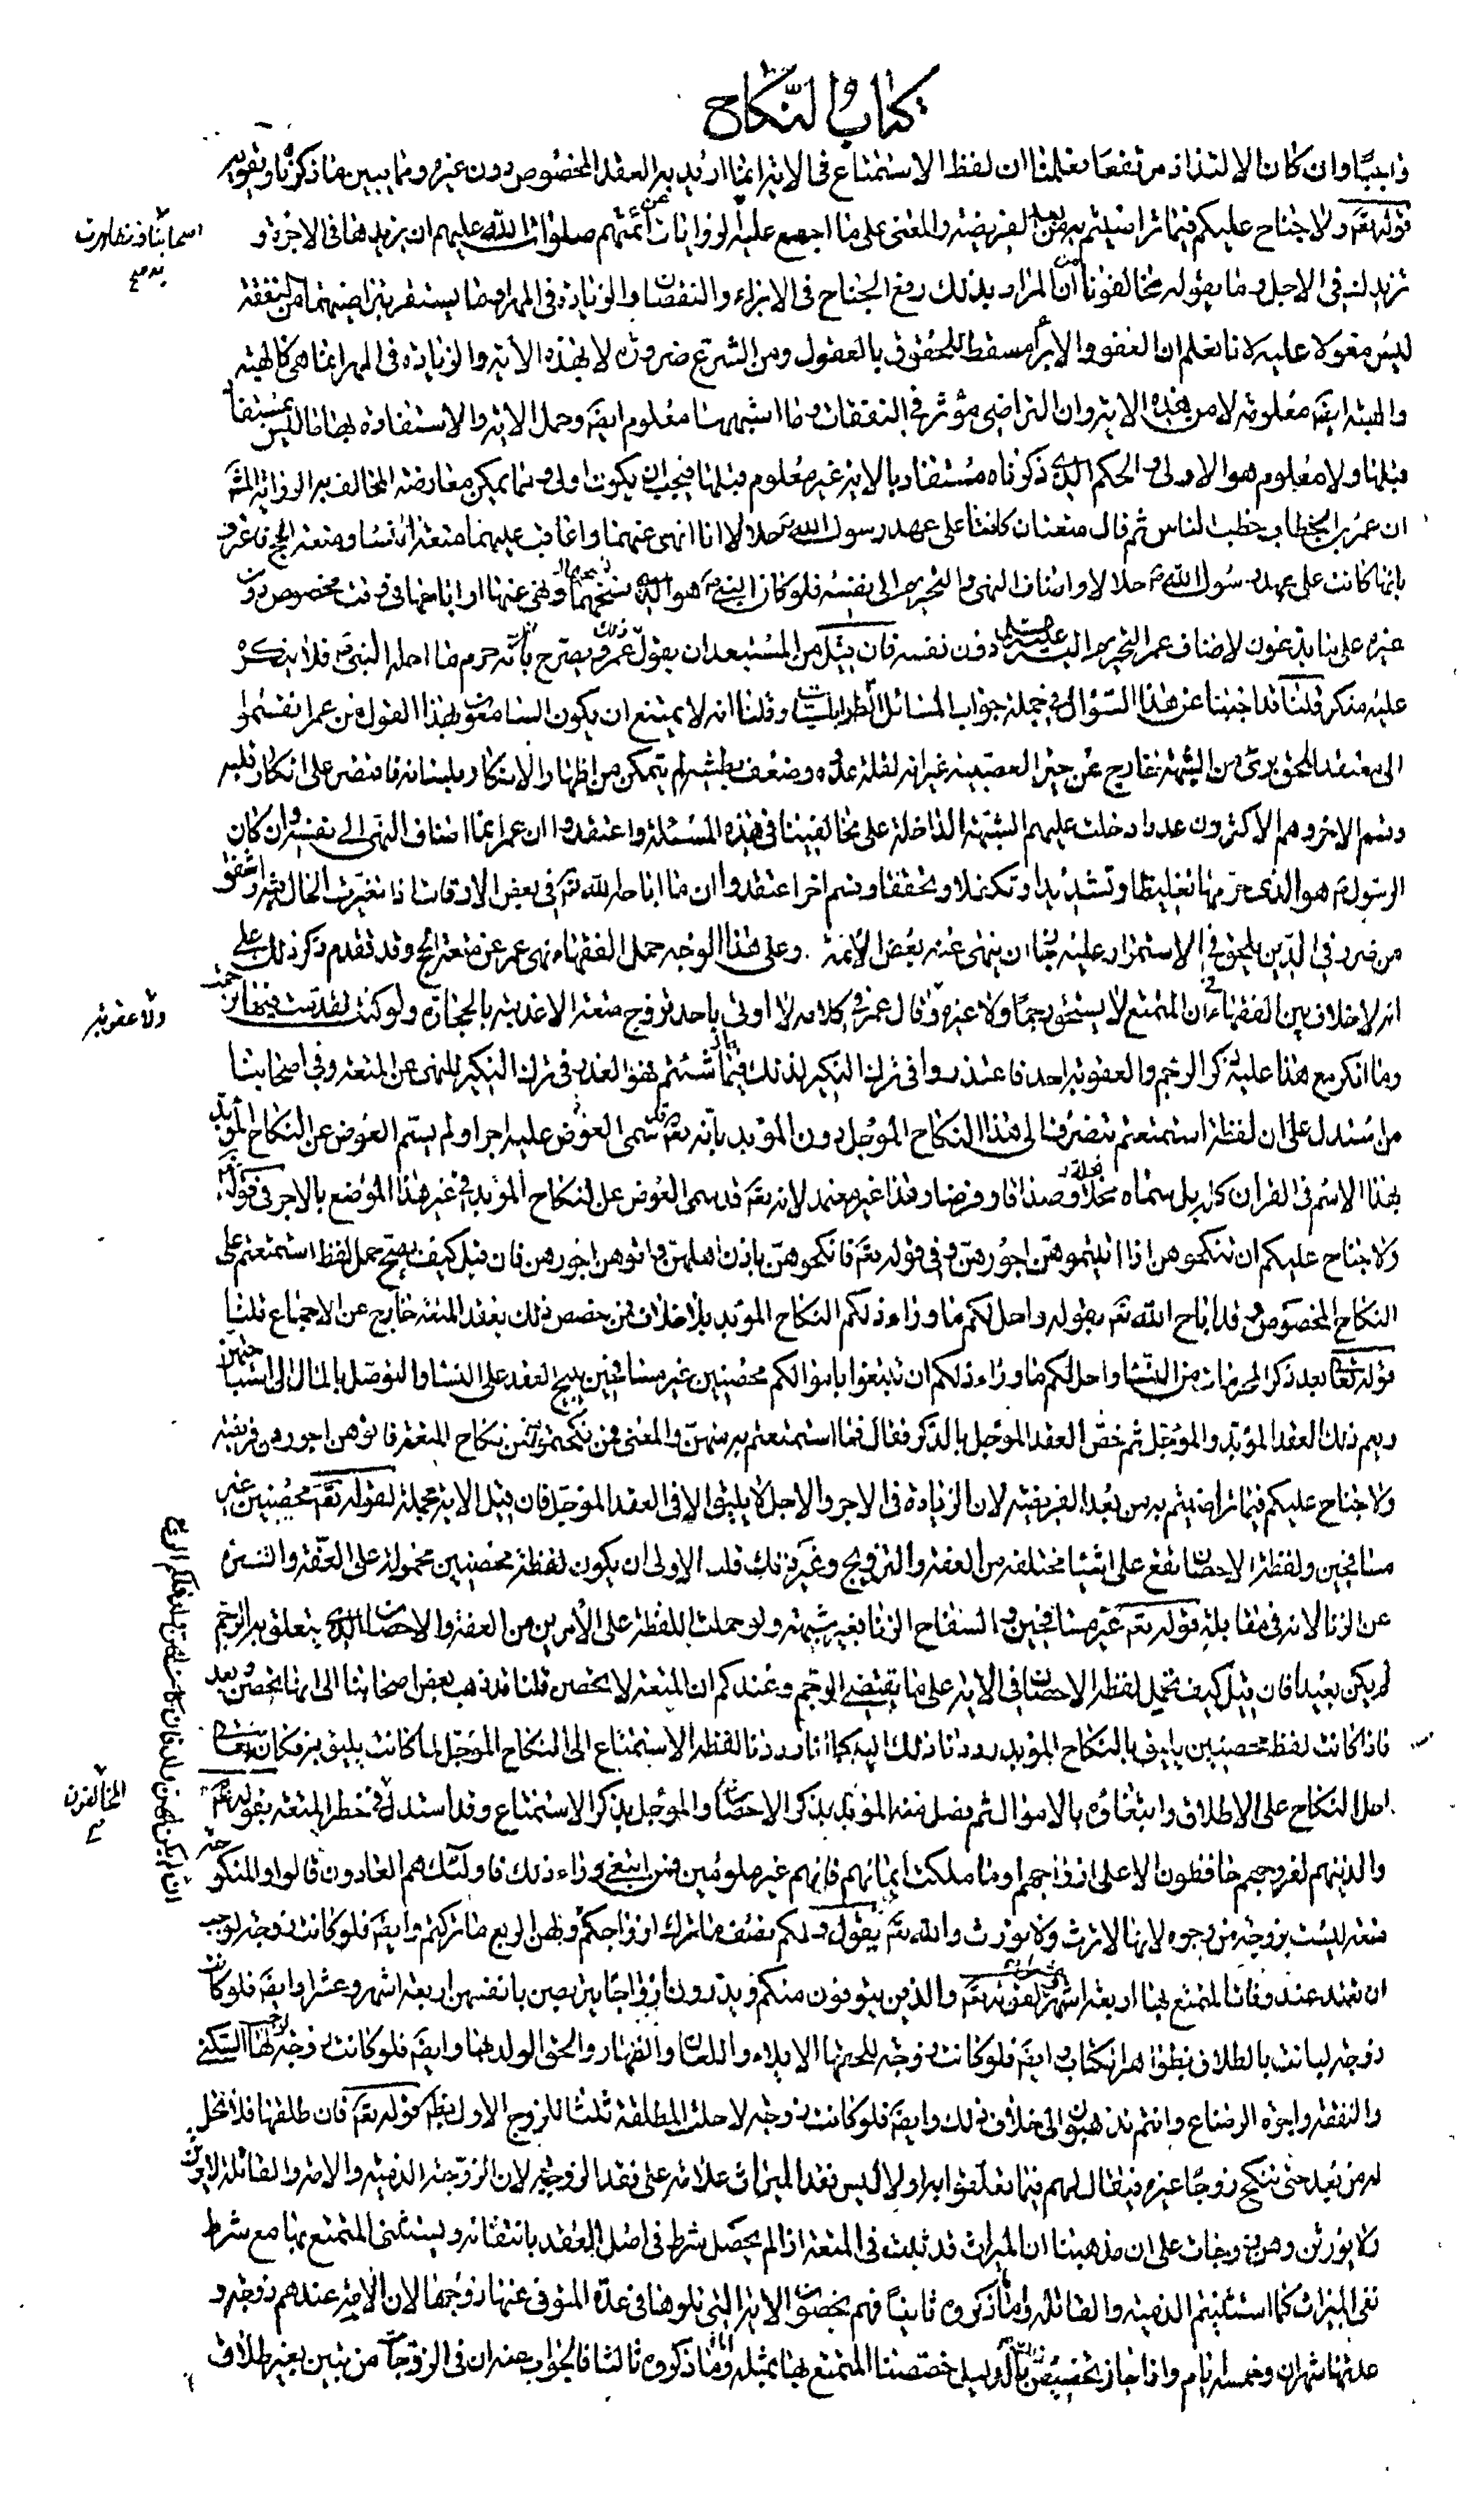 كتاب النكاح
واجبا وان كان الالتذاذ مرتفعا فعلمنا ان لفظ الاستمتاع فى الاية انما اريد به العقد المخصوص دون غيره ومما يبين ما ذكرناه ويقويه
قوله تعَ ولا جناح عليكم فيما تراضيتم به من بعد الفريضة والمعنى على ما اجمع عليه لروايات عن ائمتهم صلوات الله عليهم ان يزيدها فى الاجر و
تزيده فى الاجل وما يقوله مخالفونا من ان المراد بذلك رفع الجناح فى الابراء والنقصان او الزيادة فى المهر وما يستقر بتراضيهما من النفقة
ليس معولا عليه لانا نعلم ان العفو والابراء مسقط للحقوق بالعقول ومن الشرع ضرورة لا بهذه الاية والزيادة فى المهر انما هى كالهبة
والهبة ايضَ معلومة لا من هذه الاية وان التراضى مؤثر فى النفقات وما اشبهها معلوم ايضَ وحمل الاية والاستفادة بها ما ليس بمستفاد
قبلها ولا معلوم هو الاولى والحكم الذى ذكرناه مستفاد بالاية غير معلوم قبلها فيجب ان يكون اولى ومما يمكن معارضة المخالف به الرواية المشَ
ان عمر بن الخطاب خطب الناس ثم قال متعتان كانتا على عهد رسول الله صَ حلالا انا انهى عنهما واعاقب عليهما متعة النساء ومتعة الحج فاعترف
بانها كانت على عهد رسول الله صَ حلالا واضاف النهى والتحريم الى نفسه فلو كان النبى صَ هو الذى نسخها ونهى عنها او اباحها فى وقت مخصوص دون
غيره على ما يدعون لاضاف عمر التحريم اليه عليه السلام دون نفسه فان قيل من المستبعد ان يقول ذلك عمر ويصرح بانه حرم ما احله النبى صَ فلا ينكره
عليه منكر قلنا قد اجبنا عن هذا السؤال فى جملة جواب المسائل الطرابلسيات وقلنا انه لا يمتنع ان يكون السامعون لهذا القول من عمر انقسموا
الى معتقد للحق برئ من الشبهة خارج عن حيز العصبية غير انه لقلة عدده وضعف بطشه لم يتمكن من اظهار الانكار بلسانه فاقتصر على انكار قلبه
وقسم الاخر وهم الاكثرون عددا دخلت عليهم الشبهة الداخلة على مخالفينا فى هذه المسئلة واعتقدوا ان عمر انما اضاف النهى الى نفسه وان كان
الرسول صَ هو الذى حرمها تغليظا وتشديدا وتكفلا وتحققا وقسم اخر اعتقدوا ان ما اباحه الله تعَ فى بعض الاوقات اذا تغيرت الحال فيه واشفق
من ضرر فى الدين يلحق فى الاستمرار عليه جاز ان ينهى عنه بعض الائمة وعلى هذا الوجه حمل الفقهاء نهى عمر عن متعة الحج وقد تقدم ذكر ذلك على
انه لا خلاف بين الفقهاء فى ان المتمتع لا يستحق رجما ولا غيره وقال عمر فى كلامه لا اوتى باحد تزوج متعة الا عذبته بالحجارة ولو كنت تقدمت فيها لرجمت
وما انكر مع هذا عليه ذكر الرجم والعقوبة احد فاعتذروا فى ترك النكير لذلك بما شئتم فهو العذر فى ترك النكير للنهى عن المتعة وفى اصحابنا
من استدل على ان لفظة استمتعتم تنصرف الى هذا النكاح المؤجل دون المؤبد بانه تعَ سمى العوض عليه اجرا ولم يسم العوض عن النكاح المؤبد
بهذا الاسم فى القران كله بل سماه نحلة وصداقا وفرضا وهذا غير معتمد لانه تعَ قد سمى العوض عن النكاح المؤبد فى غير هذا الموضع بالاجر فى قوله تعَ
ولا جناح عليكم ان تنكحوهن اذا اتيتموهن اجورهن وفى قوله تعَ فانكحوهن باذن اهلهن واتوهن اجورهن فان قيل كيف يصح حمل لفظ استمتعتم على
النكاح المخصوص وقد اباح الله تعَ بقوله واحل لكم ما وراء ذلكم النكاح المؤبد بلا خلاف فمن خصص ذلك بعقد المتعة خارج عن الاجماع قلنا
قوله تعالى بعد ذكر المحرمات من النساء واحل لكم ما وراء ذلكم ان تبتغوا باموالكم محصنين غير مسافحين يبيح العقد على النساء والتوصل بالمال الى استباحتهن
ويعم ذلك العقد المؤبد والمؤجل ثم خص العقد المؤجل بالذكر فقال فما استمتعتم به منهن والمعنى فمن نكحتموه منهن نكاح المتعة فاتوهن اجورهن فريضة
ولا جناح عليكم فيما تراضيتم به من بعد الفريضة لان الزيادة فى الاجر والاجل لا يليق الا فى العقد المؤجل فان قيل الاية مجملة لقوله تعَ محصنين غير
مسافحين ولفظة الاحصان تقع على اشياء مختلفة من العفة والتزويج وغير ذلك قلنا الاولى ان يكون لفظة محصنين محمولة على العفة والتنزه
عن الزنا لانه فى مقابلة قوله تعَ غير مسافحين والسفاح الزنا بغير شبهة ولو حملت اللفظة على الامرين من العفة والاحصان الذى يتعلق به الرجم
لم يكن بعيدا فان قيل كيف تحمل لفظة الاحصان فى الاية على ما يقتضى الرجم وعندكم ان المتعة لا تحصن قلنا قد ذهب بعض اصحابنا الى انها تحصن وبعد
فاذا كانت لفظة محصنين يليق بالنكاح المؤبد رددنا ذلك اليه كما انا رددنا لفظة الاستمتاع الى النكاح المؤجل لما كانت يليق به فكان تعالى
احل النكاح على الاطلاق وابتغاؤه بالاموال ثم فصل منه المؤبد بذكر الاحصان والمؤجل بذكر الاستمتاع وقد استدل فى حظر المتعة بقوله تعَ
والذين هم لفروجهم حافظون الا على ازواجهم او ما ملكت ايمانهم فانهم غير ملومين فمن ابتغى وراء ذلك فاولئك هم العادون قالوا والمنكوحة
متعة ليست بزوجة من وجوه لانها لا ترث ولا تورث والله تعَ يقول ولكم نصف ما ترك ازواجكم ولهن الربع مما تركتم وايضَ فلو كانت زوجة لوجب
ان تعتد عند وفاة المتمتع بها اربعة اشهر وعشرا لقوله تعَ والذين يتوفون منكم ويذرون ازواجا يتربصن بانفسهن اربعة اشهر وعشرا وايضَ فلو كانت
زوجة لبانت بالطلاق بظواهر الكتاب وايضَ فلو كانت زوجة للحقها الايلاء واللعان والظهار والحق الولد بها وايضَ فلو كانت زوجة لوجب لها السكنى
والنفقة واجرة الرضاع وانتم تذهبون الى خلاف ذلك وايضَ فلو كانت زوجة لاحلت المطلقة ثلثا للزوج الاول بظاهر قوله تعَ فان طلقها فلا تحل
له من بعد حتى تنكح زوجا غيره فيقال لهم فيما تعلقوا به اولا ليس فقد الميراث علامة على فقد الزوجية لان الزوجة الذمية والامة والقاتلة لا يرثن
ولا يورثن وهن زوجات على ان مذهبنا ان الميراث قد ثبت فى المتعة اذا لم يحصل شرط فى اصل العقد بانتفائه ويستثنى المتمتع بها مع شرط
نفى الميراث كما استثنيتم الذمية والقاتلة واما ما ذكروه ثانيا فهم يخصون الاية التى تلوها فى عدة المتوفى عنها زوجها لان الامة عندهم زوجة و
عدتها شهران وخمسة ايام واذا جاز تخصيص ذلك بالدليل خصصنا المتمتع بها بمثله واما ما ذكروه ثالثا فالجواب عنه ان فى الزوجات من تبين بغير طلاق
اصحابنا وتظاهرت به صح
ولا عقوبة
المخالفون